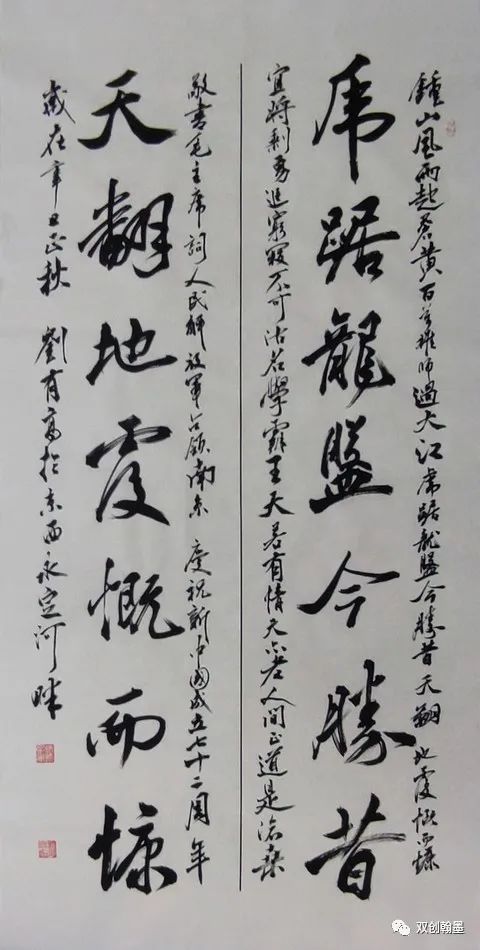 鍾山風雨起蒼黃百萬雄师過大江虎踞龍盤今勝昔天翻地覆慨而慷
虎踞龍盤今勝昔
宜將剩勇追窮寇不可沽名學霸王天若有情天亦老人间正道是滄桑
敬書毛主席詞人民解放軍占領南京 慶祝新中國成立七十二周年
天翻地覆慨而慷
歲在辛丑正秋 劉有高於京西永定河畔
双创翰墨